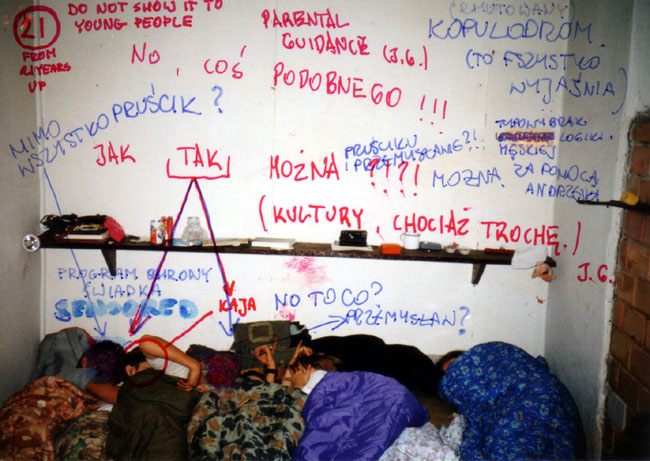 21
FROM
21 YEARS
UP
DO NOT SHOW IT TO
YOUNG PEOPLE
PARENTAL
GUIDANCE (J.G.)
KOPULODROM.
(TO FSZYSTKO
WYJAŚNIA)
NO, COŚ PODOBNEGO!!!
MIMO
WSZYSTKO PRUŚCIK?
JAK TAK MOŻNA ???!
PRUŚCIKU
I PRZEMYSŁAWIE?!!
TYPOWY BRAK
LOGIKI
MĘSKIEJ
MOŻNA. ZA POMOCĄ
ANDRZEJKA
(KULTURY, CHOCIAŻ TROCHĘ.)
J.G.
PROGRAM OHRONY
ŚWIADKA
SENSORED
KAJA
NO TO CO?
PRZEMYSŁAW?